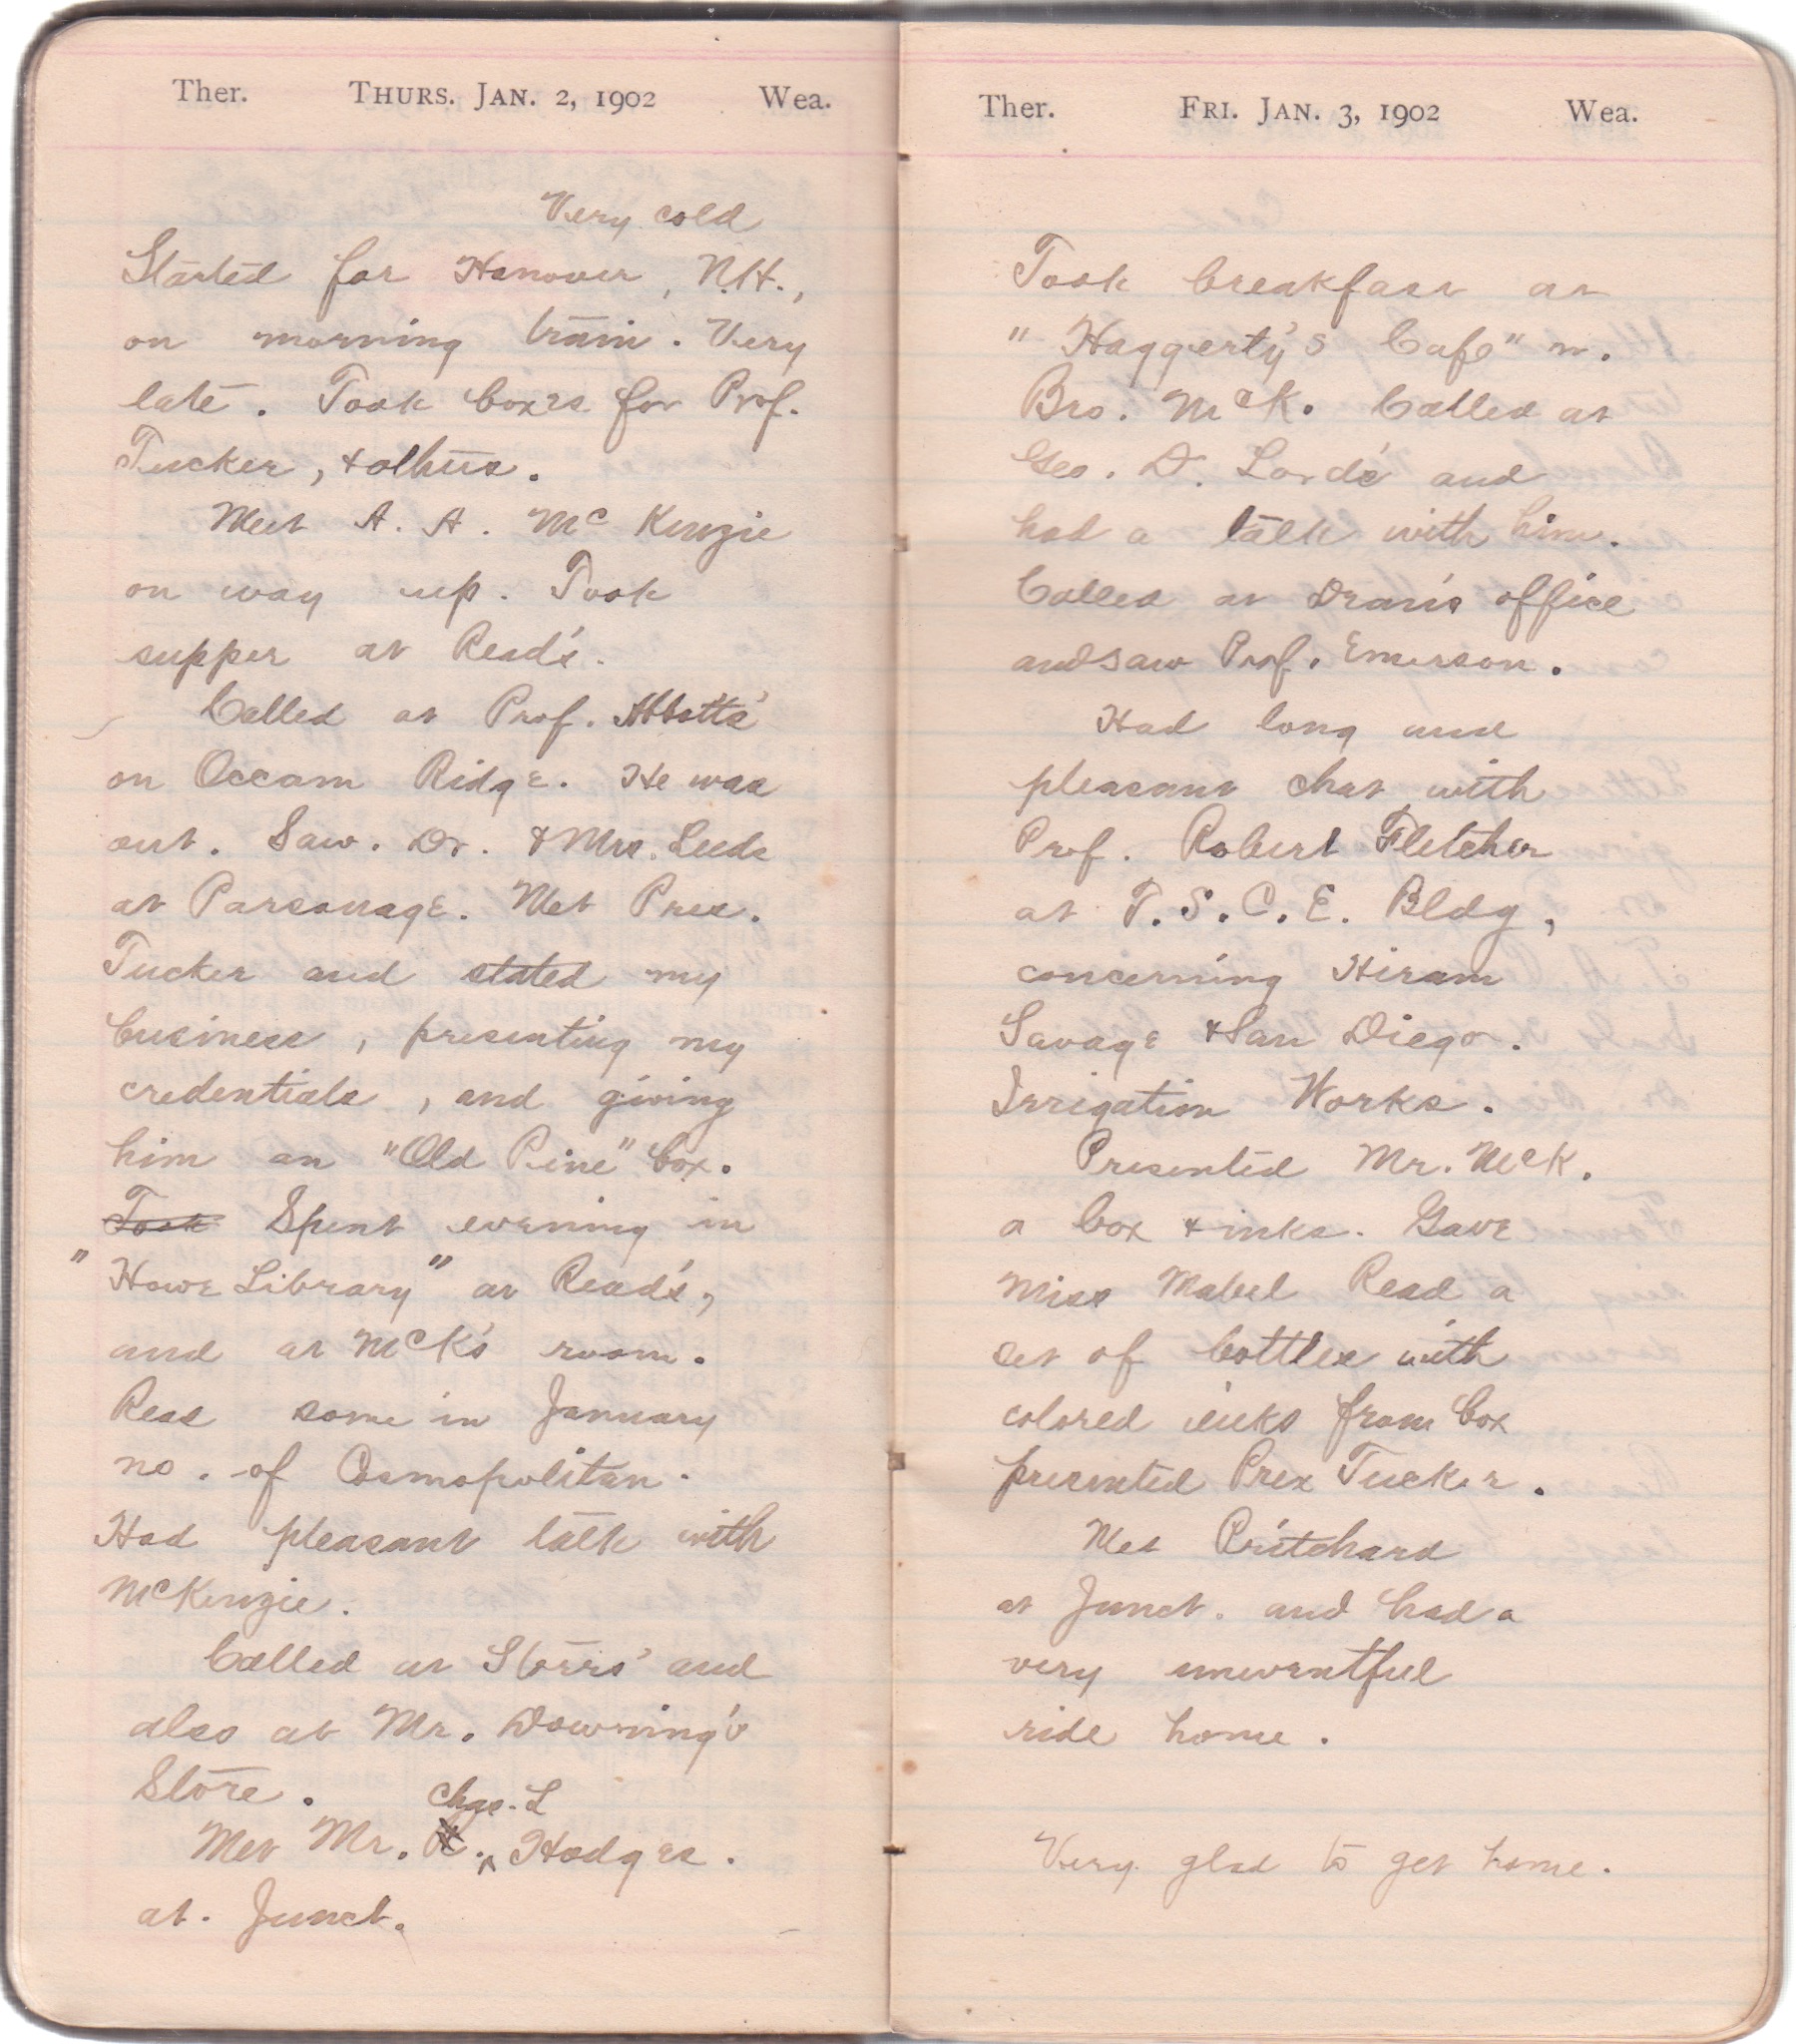 Ther. THURS. JAN. 2, 1902 Wea.
Very cold
Started for Hanover, N.H.,
on morning train. Very
late. Took boxes for Prof.
Tucker, & others.
Meet A. A. McKenzie
on way up. Took
supper at Read's.
Called at Prof. Abbott's
on Occom Ridge. He was
out. Saw. Dr. & Mrs. Leeds
at Parsonage. Met Pres.
Tucker and stated my
business, presenting my
credentials, and giving
him an "Old Pine" box.
Took Spent evening in
"Howe Library" at Read's,
and at McK's room.
Read some in January
no. of Cosmopolitan.
Had pleasant talk with
McKenzie.
Called at Storrs' and
also at Mr. Downing's
Store.
Chas. L
Met Mr. ^ Hodges.
at. Junct.
Ther. FRI. JAN. 3, 1902 Wea.
Cold
Took breakfast at
"Haggerty's Cafe" w.
Bro. McK. Called at
Geo. D. Lord's and
had a talk with him.
Called at Dean's office
and saw Prof. Emerson.
Had long and
pleasant chat with
Prof. Robert Fletcher
at T. S. C. E. Bldg,
concerning Hiram
Savage & San Diego.
Irrigation Works.
Presented Mr. McK.
a box & inks. Gave
Miss Mabel Read a
set of bottles with
colored inks from box
presented Prex Tucker.
Met Pritchard
at Junct. and had a
very uneventful
ride home.
Very glad to get home.